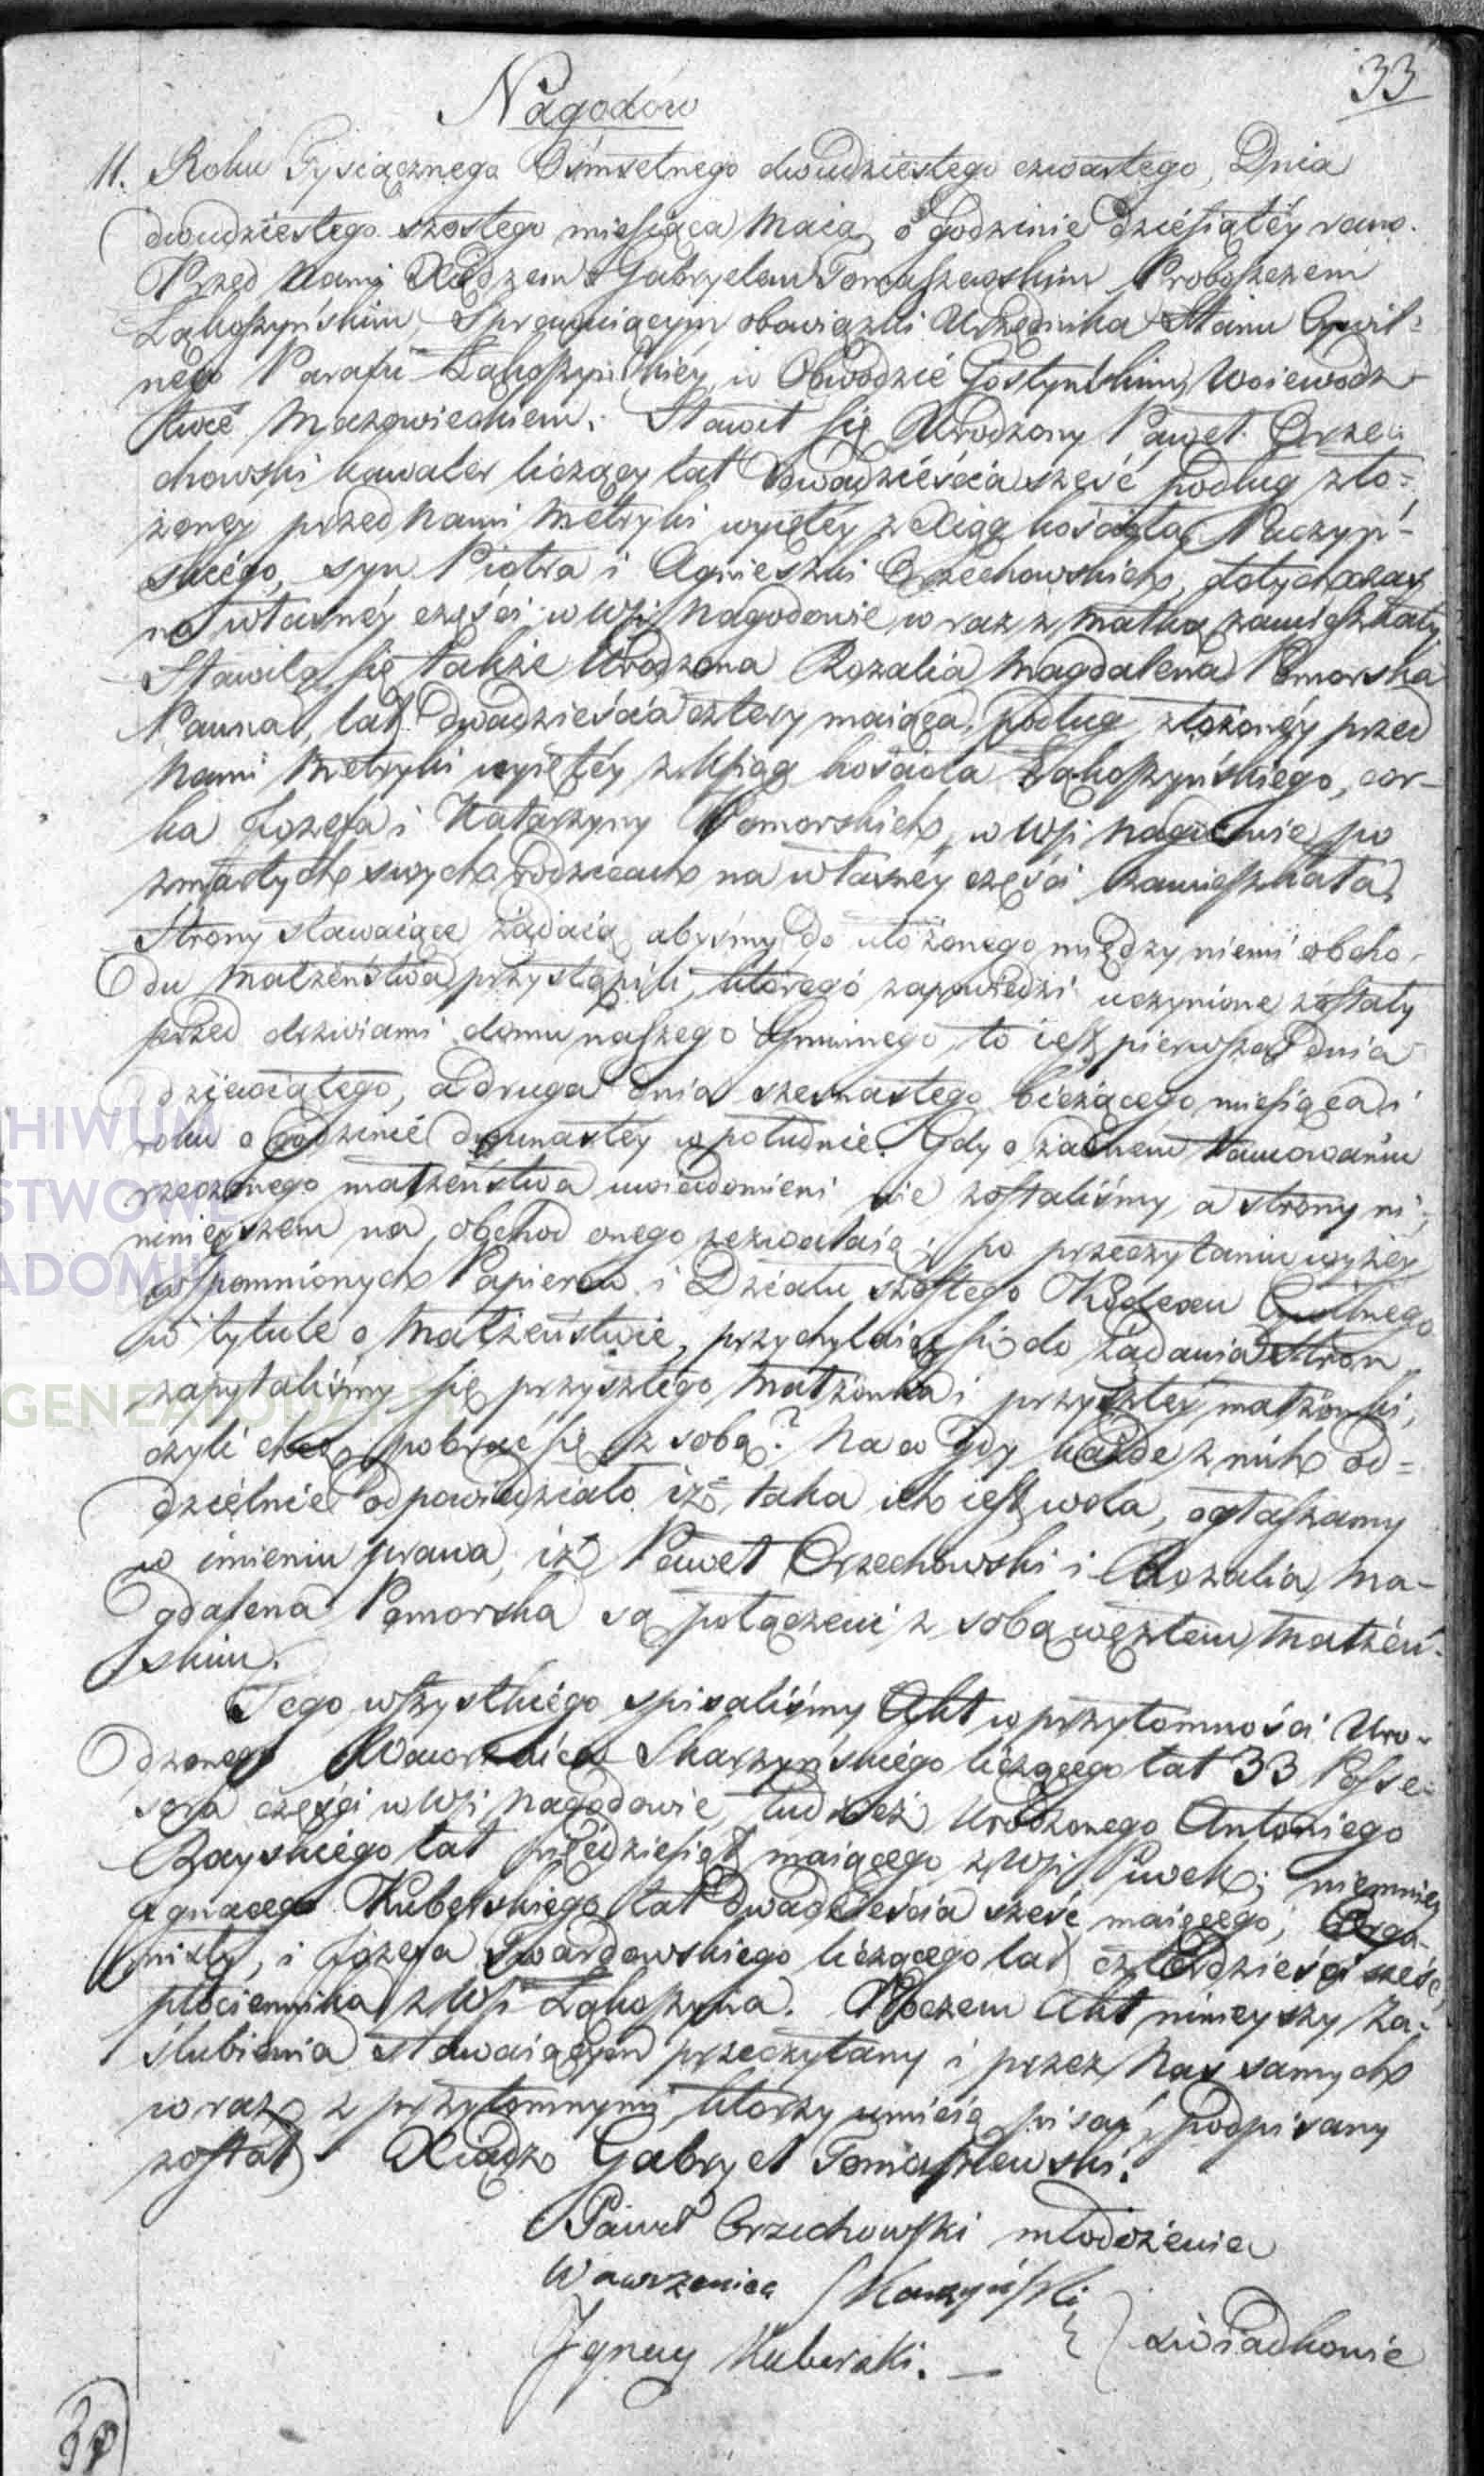 33
Nagodow
11. Roku Tysiącznego Ośmsetnego dwudziestego czwartego, Dnia
dwudziestego szostego miesiąca Maia o godzinie dziesiątey rano.
Przed Nami Xiędzem Gabryelem Tomaszewskim Proboszczem
Łąkoszyńskim, Sprawuiącym obowiązki Urzędnika Stanu Cywil=
nego Parafii Łąkoszyńskiey, w Obwodzie Gostyńskim, Woiewodz-
twie Mazowieckiem. Stawił się Urodzony Paweł Orze=
chowski kawaler liczący lat dwadzieścia sześć podług zło=
żoney przed Nami Metryki wyiętey z Xiąg kościoła
skiego, syn Piotra i Agnieszki Orzechowskich, dotychczas
na własney części w Wsi Nagodowie wraz z matką zamieszkały
Stawiła się także Urodzona Rozalia Magdalena Pomorska
Panna, lat dwadzieścia cztery maiąca, podług złożoney przed
Nami Metryki wyiętey z Xsiąg kościoła Łąkoszyńskiego, cor-
ka Jozefa i Katarzyny Pomorskich, w Wsi Nagodowie po
zmarłych swych Rodzicach na własney części zamieszkała.
Strony stawaiące żądaią abyśmy do ułożonego między niemi obcho-
du Małżeństwa przystąpili, którego zapowiedzi uczynione zostały
przed drzwiami domu naszego Gminnego, to iest pierwsza dnia
dziewiątego, a druga dnia szesnastego bieżącego miesiąca i
roku o godzinie dwunastey w południe. Gdy o żadnem tamowaniu
rzeczonego małżeństwa uwiadomieni nie zostaliśmy, a strony ni=
nieyszem na obchod onego zezwalaią; po przeczytaniu wyżey
wspomnionych Papierow i Działu szostego Kodexu Cywilnego
w tytule o Małżeństwie, przychylaiąc się do żądania Stron
zapytaliśmy się przyszłego Małżonka i przyszłey małżonki,
czyli chcą pobrać się z sobą? Na co gdy każde z nich od=
dzielnie odpowiedziało iż taka ich iest wola, ogłaszamy
w imieniu prawa, iż Paweł Orzechowski i Rozalia Ma-
gdalena Pomorska są połączeni z sobą węzłem Małżeń=
skim.
Tego wszystkiego spisaliśmy Akt w przytomności Uro=
dzonego Wawrzeńca Skarzyńskiego liczącego lat 33 Posse=
sora części w Wsi Nagodowie, tudzież Urodzonego Antoniego
Rayskiego lat pięćdziesiąt maiącego z Wsi Piwek; niemniey
Ignacego Kuberskiego lat dwadzieścia sześć maiącego, Orga-
nisty, i Józefa Twardowskiego liczącego lat czterdzieści sześć,
płóciennika z Wsi Łąkoszyna. Poczem Akt ninieyszy Za=
ślubienia stawaiącym przeczytany i przez Nas samych
wraz z przytomnymi, ktorzy umieią pisać, podpisany
został. Xiądz Gabryel Tomaszewski.
Paweł Orzechowski młodożeniec
Wawrzeniec Skarzyński
Jgnacy Kuberski. — świadkowie
HIWUM
STWOWE
ADOMIU
GENEALODZY.PL